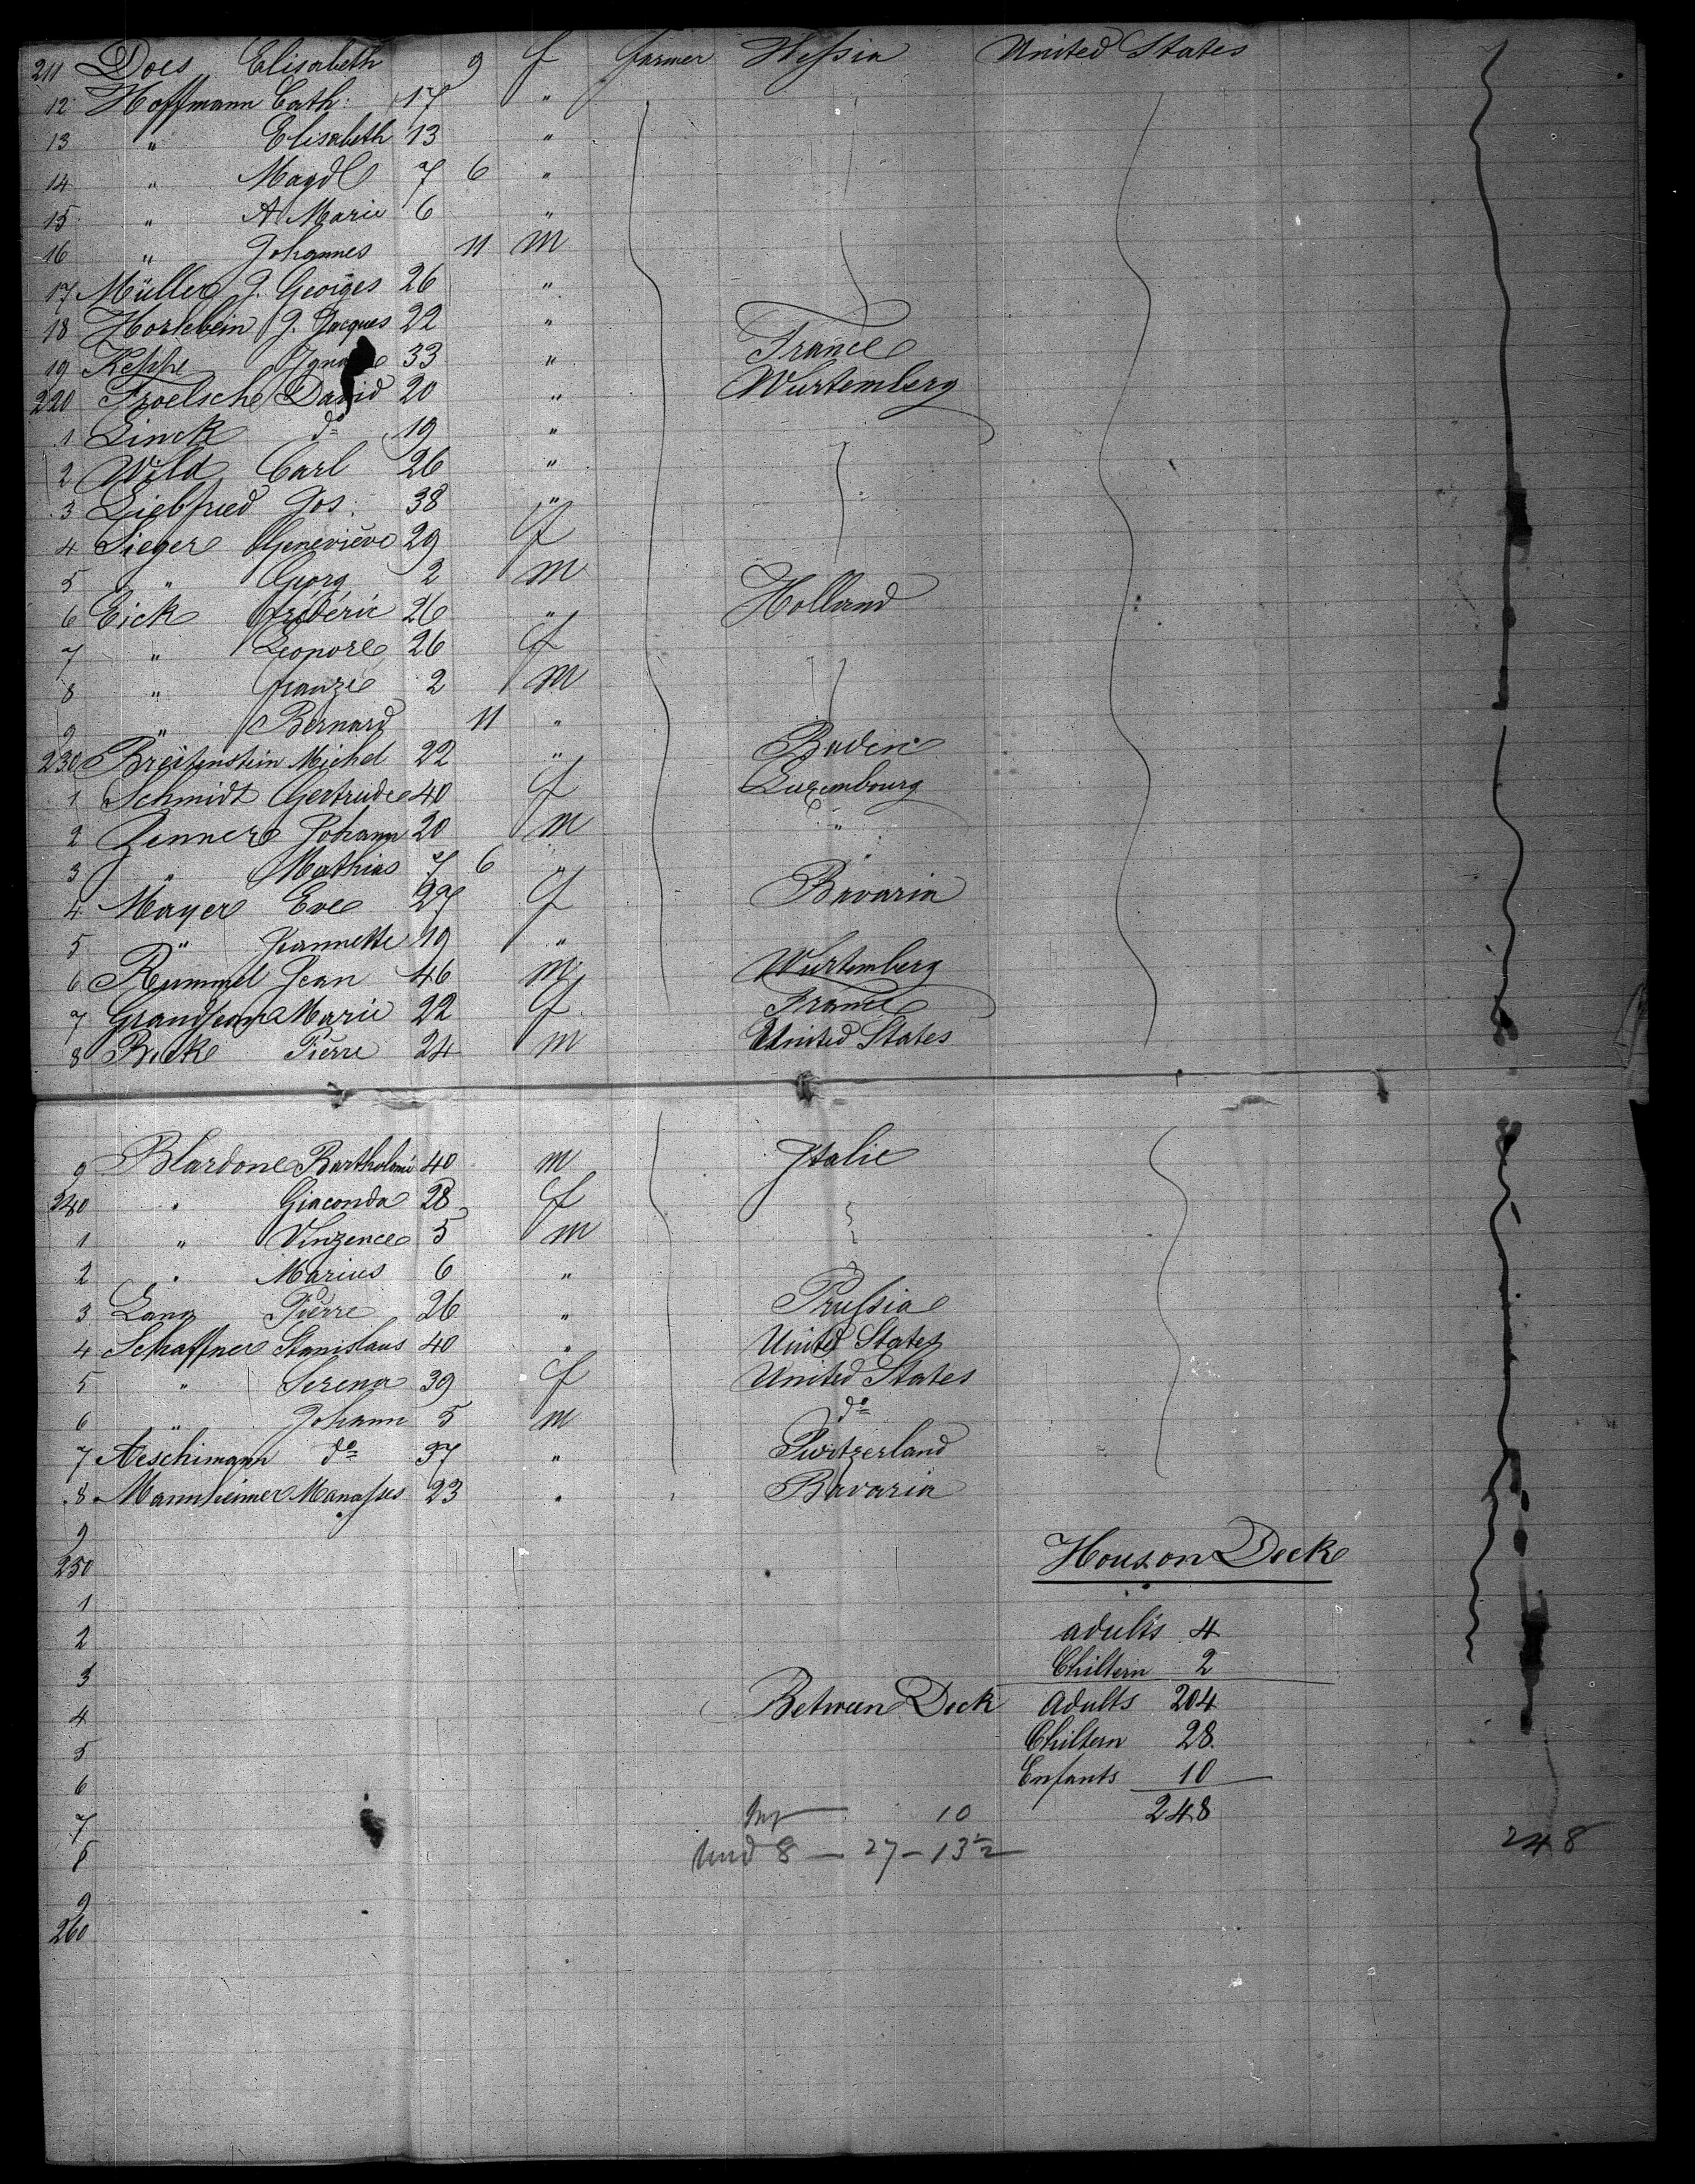 211 Does Elisabeth 9 f farmer Hessia United States
12 Hoffmann Cath: 17 "
13 " Elisabeth 13 "
14 " Magdl 7 6 "
15 " A Marie 6 "
16 " Johannes 11 m
17 Müller J. Georges 26 "
18 Horlebein J. Jacques 22 "
19 Keppe 33 " France
220 Froelsche David 20 " Wurtemberg
1 Linck do 19 "
2 Wild Carl 26 "
3 Liebfried Jos: 38 "
4 Sieger Geneviève 29 f
5 " Georg 2 m
6 Eick Fréderic 26 " Holland
7 " Leonore 26 f
8 " Franze 2 m
9 " Bernard 11 "
230 Breitenstein Michel 22 " Baden
1 Schmidt Gertrude 40 f Luxembourg
2 Zenner Johann 20 m "
3 " Mathias 7 6 " "
4 Mayer Eve 27 f Bavaria
5 " Jeannette 19 "
6 Rummel Jean 46 m Wurtemberg
7 Grandjean Marie 22 f France
8 Pierre 24 m United States
9 Blardone Bartholomé 40 m Italie
240 " Giaconda 28 f
1 " Vinzence 5 m
2 " Marius 6 "
3 Lang Pierre 26 " Prussia
4 Schaffner Stanislaus 40 " United States
5 " Serena 39 f United States
6 " Johann 5 m do
7 Aeschimann do 37 " Switzerland
8 Mannheimer Manasses 23 " Bavaria
9
250 Houson Deck
1
2 adults 4
3 Chiltern 2
4 Between Deck Adults 204
5 Chiltern 28
6 Enfants 10
7 Inf 10 248
8 Und 8 — 27 — 13½ 248
9
260